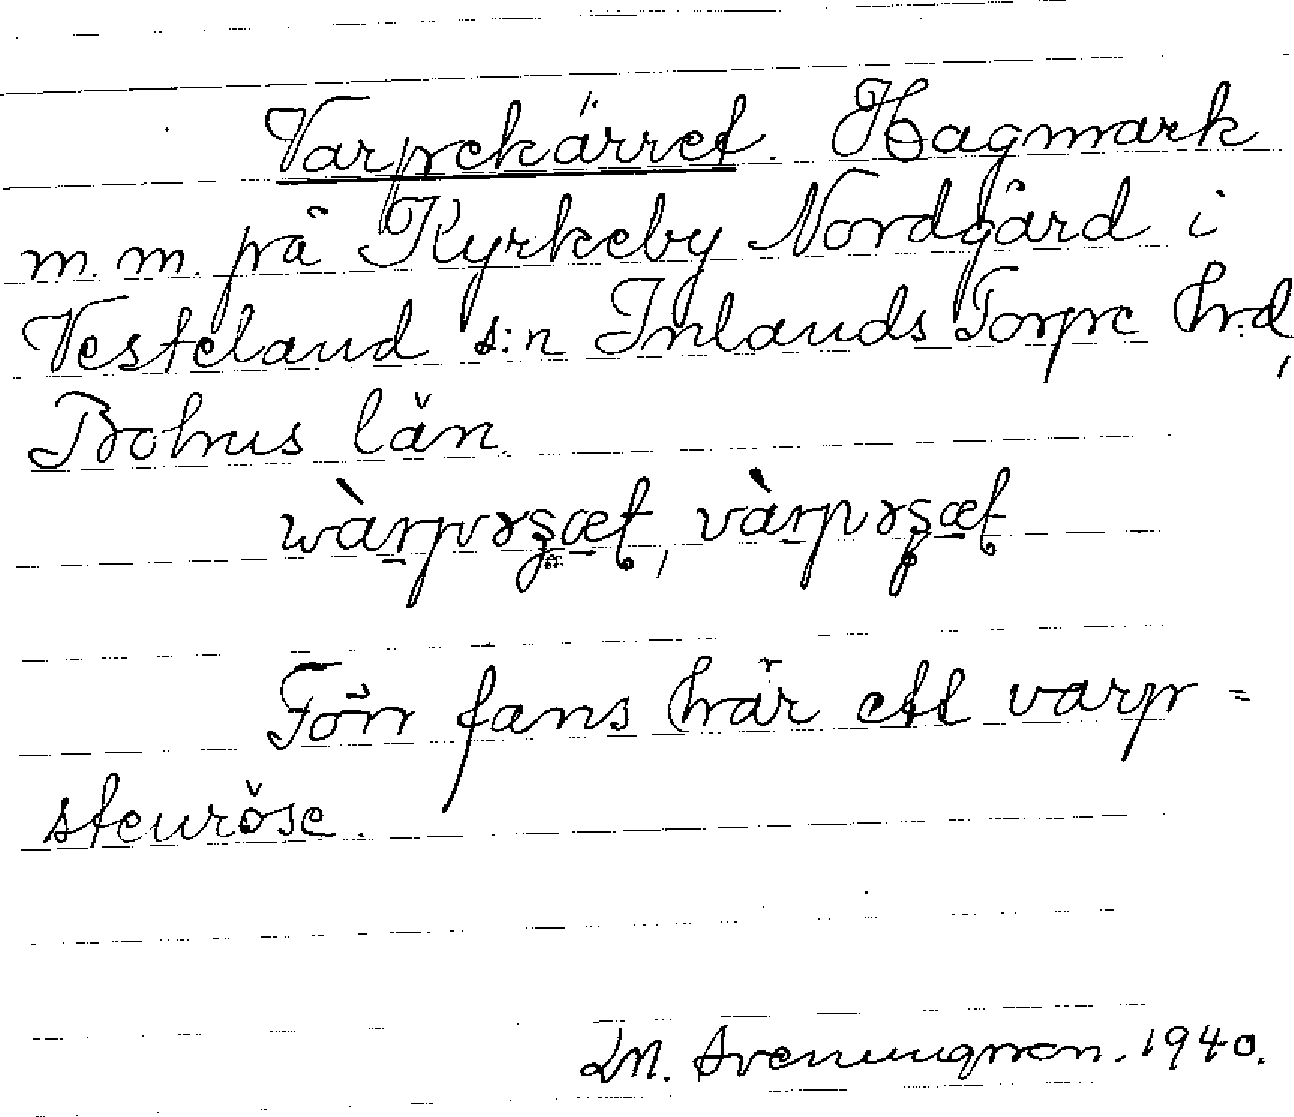 Varpekärret. Hagmark
m. m. på Kyrkeby Nordgård i
Vesteland s:n Inlands Torpe hrd,
Bohus län.
Förr fans här ett varp=
stenröse.
M. Sveningson. 1940.